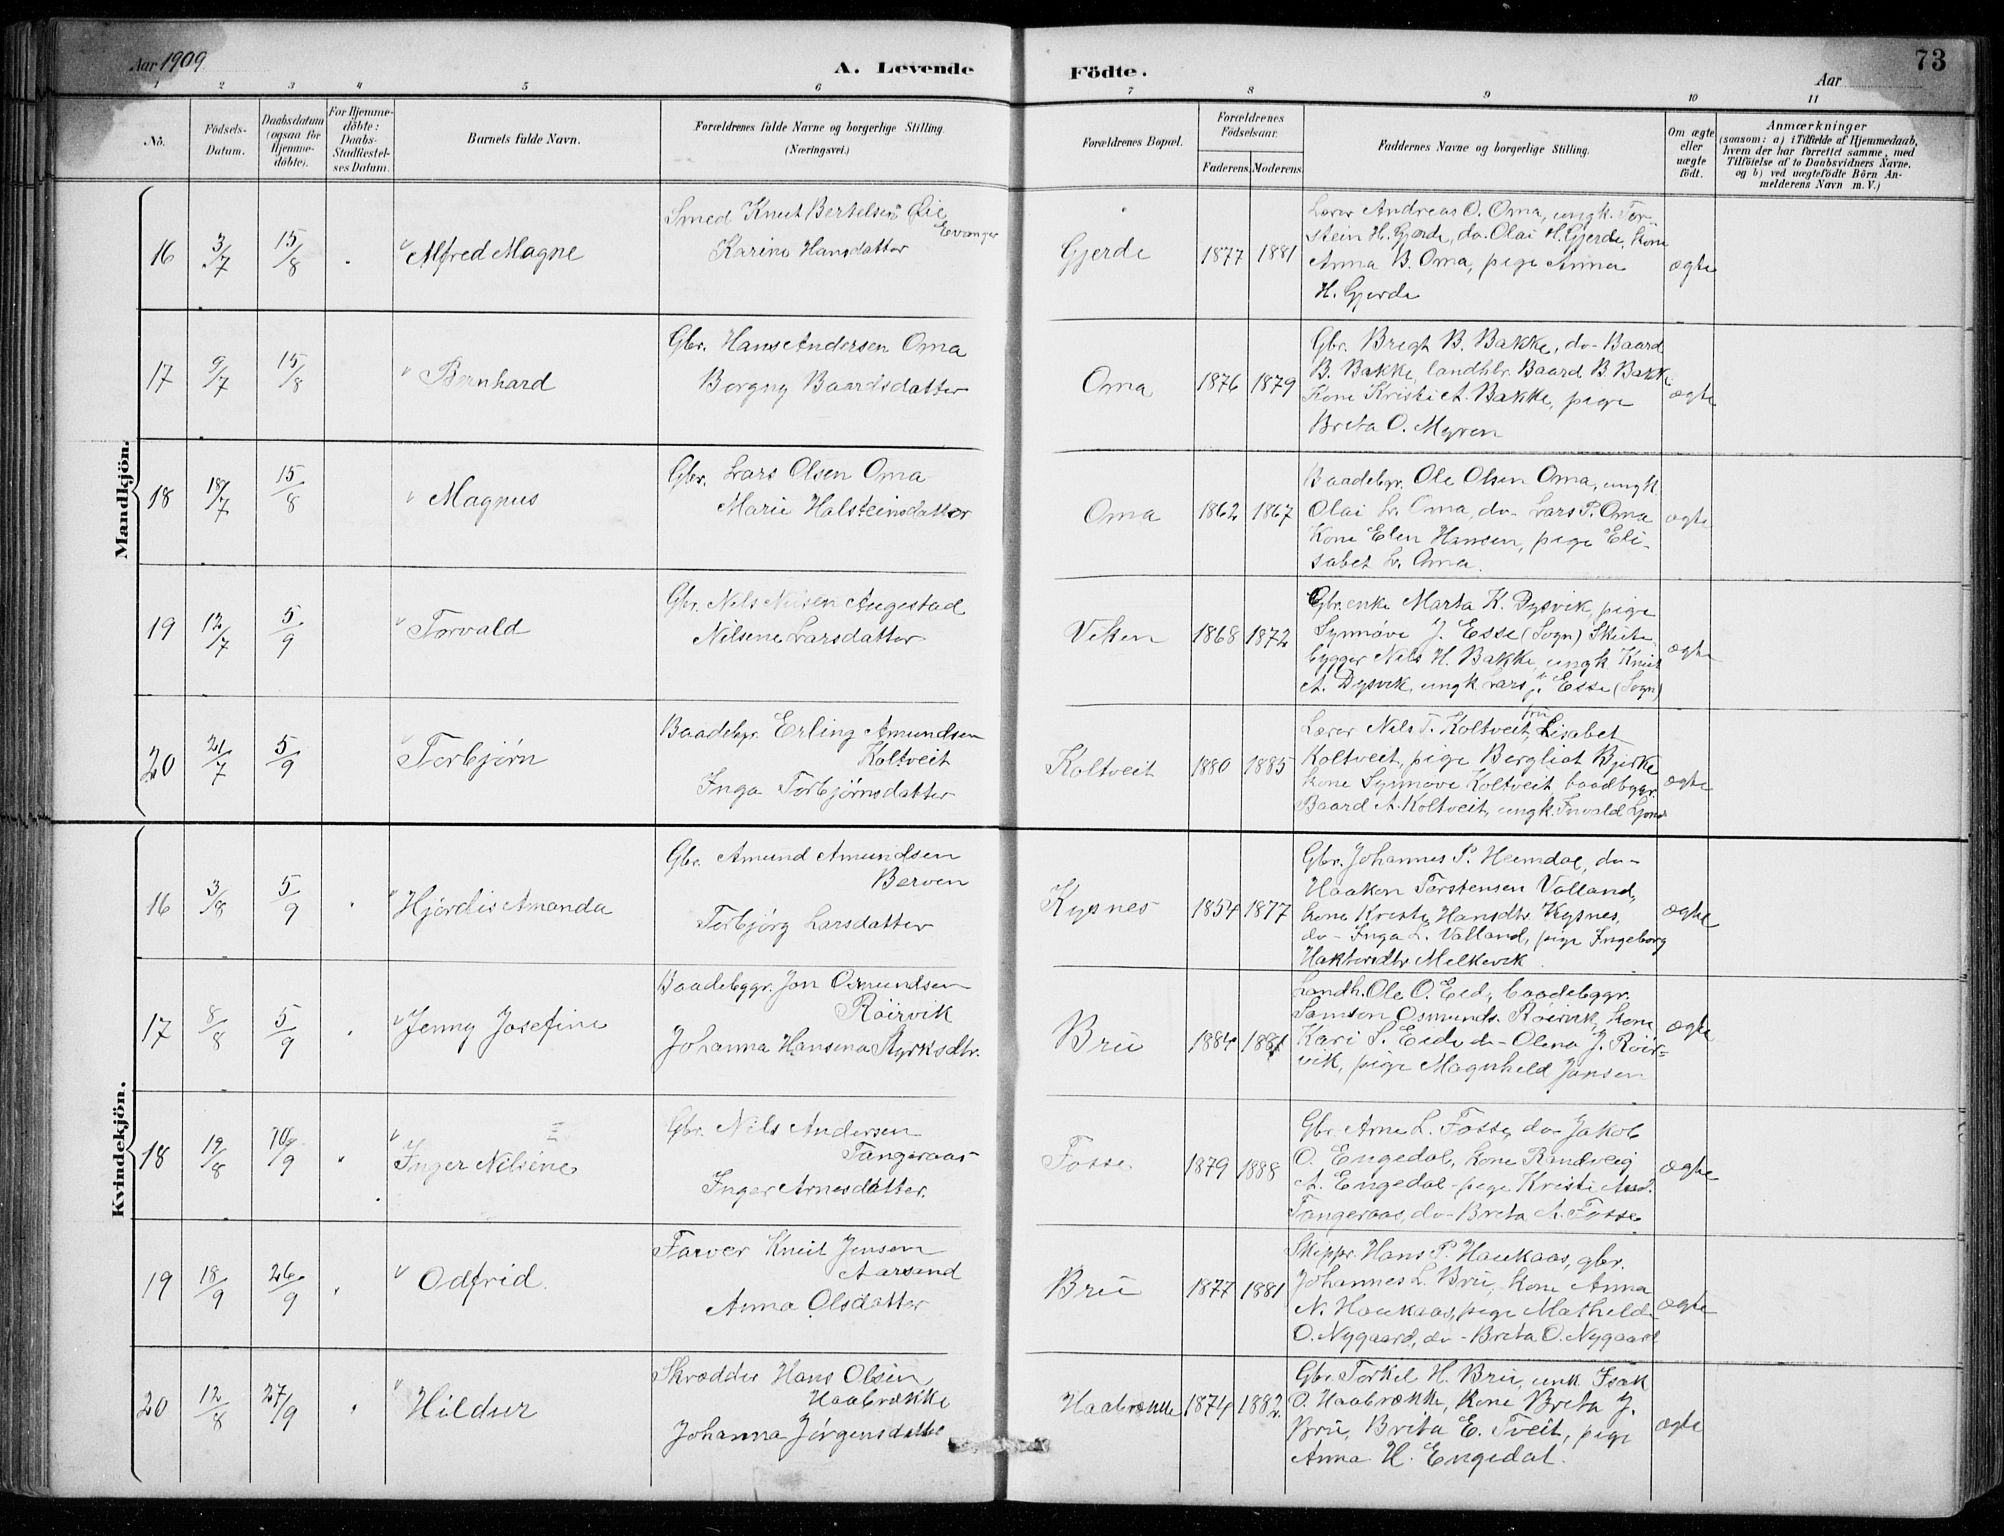 Aar 1909
A. Levende
Födte.
Aar
73
1 2 3 4 5 6 7 8 9 10 11
No.
Födsels-
Datum.
Daabsdatum
(ogsaa for
Hjemme-
döbte).
For Hjemme-
döbte:
Daabs-
Stadfæstel-
ses Datum.
Barnets fulde Navn.
Forældrenes fulde Navne og borgerlige Stilling.
(Næringsvei.)
Forældrenes Bopæl.
Forældrenes
Födselsaar.
Faderens. Moderens.
Faddernes Navne og borgerlige Stilling.
Om ægte
eller
uægte
födt.
Anmærkninger
(saasom: a) i Tilfælde af Hjemmedaab,
hvem der har forrettet samme, med
Tilföielse af to Daabsvidners Navne.
og b) ved uægtefödte Börn An-
melderens Navn m. V.)
Mandkjön.
16 3/7 15/8 Alfred Magne
Smed Knut Bertelsen Øie
Evanger
Karine Hansdatter
Gjerde 1877 1881
Lærer Andreas O. Oma, ungk. Tor-
stein H. Gjerde, do. Olai H. Gjerde, kone
Anna B. Oma, pige Anna
H. Gjerde
ægte
17 9/7 15/8 Bernhard
Gbr. Hans Andersen Oma
Borgny Baardsdatter
Oma 1876 1879
Gbr. Brigt B. Bakke, do- Baard
B. Bakke, landhbr. Baard B. Bakke
Kone Kristi A. Bakke, pige
Brita O. Myren
ægte
18 18/7 15/8 Magnus
Gbr. Lars Olsen Oma
Marie Halsteinsdatter
Oma 1862 1867
Baadebgr. Ole Olsen Oma, ungk.
Olai L. Oma, do- Lars P. Oma
Kone Elen Hansen, pige Eli-
sabet L. Oma.
ægte
19 12/7 5/9 Torvald
Gbr. Nels Nilsen Augestad
Nilsene Larsdatter
Viken 1868 1872
Gbr.enke Marta K. Dysvik, pige
Synnøve J. Esse (Sogn) Skute
bygger Nels H. Bakke, ungk Knut
A. Dysvik, ungk Lars J. Esse (Sogn)
ægte
20 21/7 5/9 Torbjørn
Baadebgr. Erling Amundsen
Koltveit
Inga Torbjørnsdatter
Koltveit 1880 1885
Lærer Nils T. Koltveit, fru Lisabet
Koltveit, pige Bergliot Bjerke
kone Synnøve Koltveit baadbggr.
Baard A. Koltveit, ungk. Invald Lyons
ægte
Kvindekjön.
16 3/8 5/9 Hjørdis Amanda
Gbr. Amund Amundsen
Berven
Torbjørg Larsdatter
Kysnes 1854 1877
Gbr. Johannes P. Heimdal, do-
Haaken Torstensen Valland,
kone Kristi Hansdtr. Kysnes,
do- Inga L. Valland, pige Ingeborg
Melkevik
ægte
17 8/8 5/9 Jenny Josefine
Baadebggr. Jon Osmundsen
Röirvik
Johanna Hansena Styrksdtr.
Bru 1884 1881
Landh. Ole O. Eid, baadebggr.
Samson Osmunds. Röirvik, kone
Kari S. Eid, do- Olena J. Röir-
vik, pige Magnhild Jansen
ægte
18 19/8 10/9 Inger Nilsine
Gbr. Nils Andersen
Tangeraas
Inger Arnesdatter.
Fosse 1879 1888
Gbr. Arne L. Fosse, do- Jakob
O. Engedal, kone Randveig
A. Engedal - pige Kristi And.
Tangeraas, do- Breta A. Fosse
ægte
19 18/9 26/9 Odfrid.
Farver Knut Jensen
Aarsand
Anna Olsdatter
Bru 1877 1881
Skippr. Hans P. Haukaas, gbr.
Johannes L. Bru, kone Anna
N. Haukaas, pige Mathilde
O. Nygaard, do- Breta O. Nygaard
ægte
20 12/8 27/9 Hildur
Skrædder Hans Olsen
Haabrække
Johanna Jørgensdatter
Haabrække 1874 1882
Gbr. Torkel H. Bru, unk. Isak
O. Haabrække, kone Breta J.
Bru, Brita E. Tveit, pige
Anna H. Engedal.
ægte